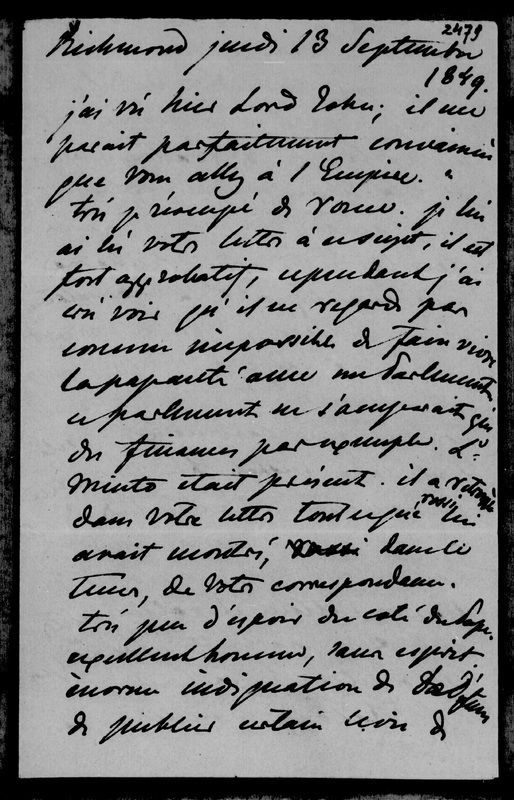 2479
Richmond jeudi 13 Septembre
1849.
j'ai vu hier Lord John; il me
parait parfaitement convaincu
que vous allez à l'Empire. &
très préoccupé de Rome. je lui
ai lu votre lettre à ce sujet, il est
fort approbatif, cependant j'ai
cru voir qu'il ne regarde pas
comme impossible de faire vivre
la papauté avec un Parlement
ce parlement ne s'occuperait que
des finances par exemple. Ld
Minto était présent. il a retrouvé
dans votre lettre tout ce que Rossi lui
avait montré, dans le
tems, de votre correspondance.
très peu d'espoir du coté du Pape.
excellent homme, sans esprit
énorme indignation de
de publier certain